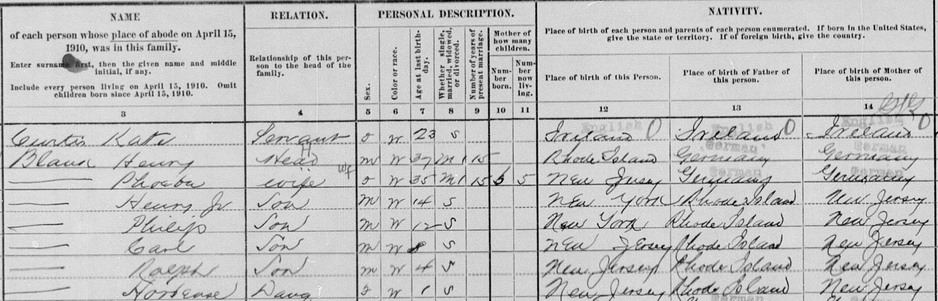 NAME RELATION. PERSONAL DESCRIPTION. NATIVITY.
of each person whose place of abode on April 15, 1910, was in this family.
Enter surname first, then the given name and middle initial, if any.
Include every person living on April 15, 1910. Omit children born since April 15, 1910.
Relationship of this person to the head of the family.
Sex.
Color or race.
Age at last birthday.
Whether single, married, widowed, or divorced.
Number of years of present marriage.
Mother of how many children.
Number born.
Number now living.
Place of birth of each person and parents of each person enumerated. If born in the United States, give the state or territory. If of foreign birth, give the country.
Place of birth of this Person.
Place of birth of Father of this person.
Place of birth of Mother of this person.
3 4 5 6 7 8 9 10 11 12 13 14
Curtis Kate Servant F W 23 S Ireland English Ireland English Ireland English
Blaun Henry Head M W 37 M1 15 Rhode Island Germany German Germany German
— Phoebe Wife F W 35 M1 15 5 New Jersey Germany German Germany German
— Henry Jr Son M W 14 S New York Rhode Island New Jersey
— Philip Son M W 12 S New York Rhode Island New Jersey
— Carl Son M W 8 S New Jersey Rhode Island New Jersey
— Ralph Son M W 4 S New Jersey Rhode Island New Jersey
— Hortense Daug F W 1 S New Jersey Rhode Island New Jersey